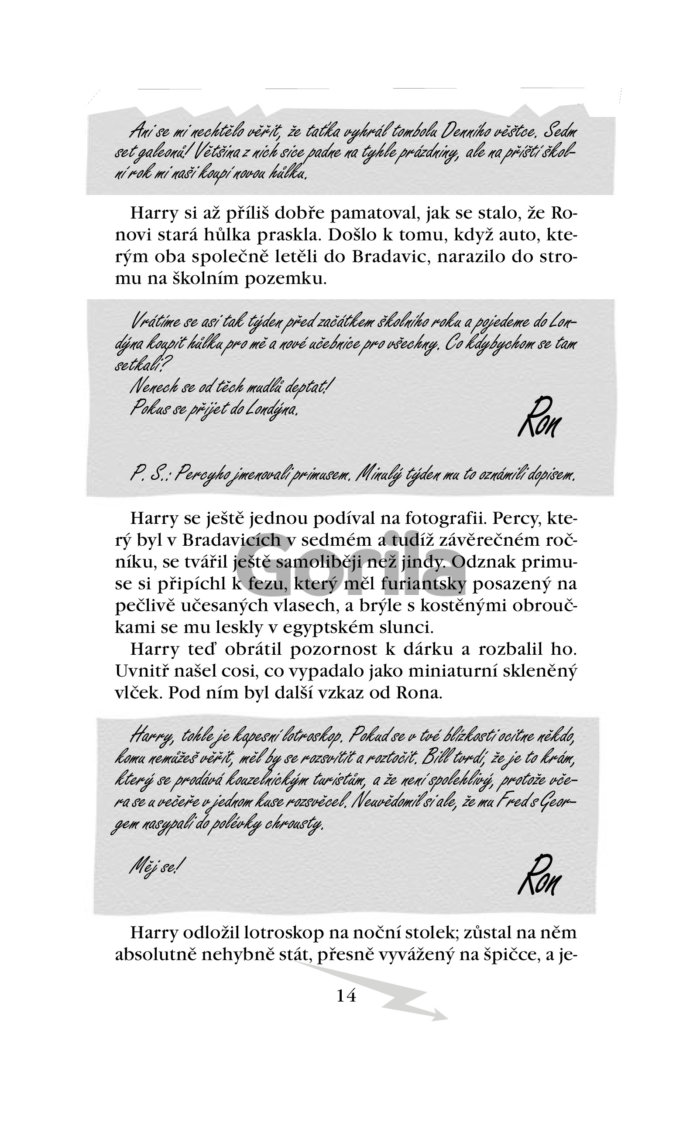 Ani se mi nechtělo věřit, že taťka vyhrál tombolu Denního věštce. Sedm
set galeonů! Většina z nich sice padne na tyhle prázdniny, ale na příští škol-
ní rok mi naši koupí novou hůlku.
Harry si až příliš dobře pamatoval, jak se stalo, že Ro-
novi stará hůlka praskla. Došlo k tomu, když auto, kte-
rým oba společně letěli do Bradavic, narazilo do stro-
mu na školním pozemku.
Vrátíme se asi tak týden před začátkem školního roku a pojedeme do Lon-
dýna koupit hůlku pro mě a nové učebnice pro všechny. Co kdybychom se tam
setkali?
Nenech se od těch mudlů deptat!
Pokus se přijet do Londýna.
Ron
P. S.: Percyho jmenovali primusem. Minulý týden mu to oznámili dopisem.
Harry se ještě jednou podíval na fotografii. Percy, kte-
rý byl v Bradavicích v sedmém a tudíž závěrečném roč-
níku, se tvářil ještě samoliběji než jindy. Odznak primu-
se si připíchl k fezu, který měl furiantsky posazený na
pečlivě učesaných vlasech, a brýle s kostěnými obrouč-
kami se mu leskly v egyptském slunci.
Harry teď obrátil pozornost k dárku a rozbalil ho.
Uvnitř našel cosi, co vypadalo jako miniaturní skleněný
vlček. Pod ním byl další vzkaz od Rona.
Harry, tohle je kapesní lotroskop. Pokud se v tvé blízkosti ocitne někdo,
komu nemůžeš věřit, měl by se rozsvítit a roztočit. Bill tvrdí, že je to krám,
který se prodává kouzelnickým turistům, a že není spolehlivý, protože vče-
ra se u večeře v jednom kuse rozsvěcel. Neuvědomil si ale, že mu Fred s Geor-
gem nasypali do polévky chrousty.
Měj se!
Ron
Harry odložil lotroskop na noční stolek; zůstal na něm
absolutně nehybně stát, přesně vyvážený na špičce, a je-
14
Gorila